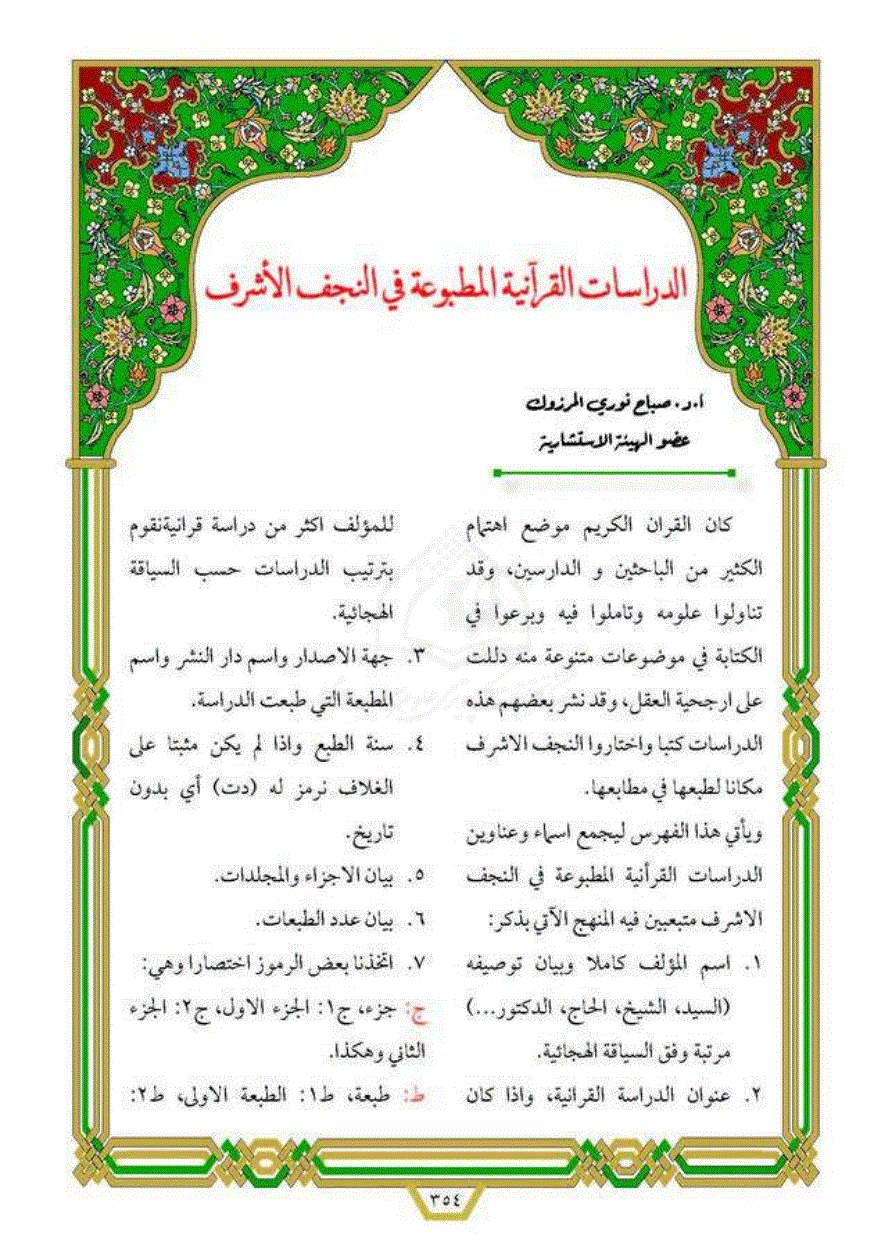 الدراسات القرآنية المطبوعة في النجف الأشرف
أ.د. صباح نوري المرزوك
عضو الهيئة الاستشارية
كان القران الكريم موضع اهتمام
الكثير من الباحثين و الدارسين، وقد
تناولوا علومه وتاملوا فيه وبرعوا في
الكتابة في موضوعات متنوعة منه دللت
على ارجحية العقل، وقد نشر بعضهم هذه
الدراسات كتبا واختاروا النجف الاشرف
مكانا لطبعها في مطابعها.
ويأتي هذا الفهرس ليجمع اسماء وعناوين
الدراسات القرأنية المطبوعة في النجف
الاشرف متبعبين فيه المنهج الآتي بذكر:
١. اسم المؤلف كاملا وبيان توصيفه
(السيد، الشيخ، الحاج، الدكتور...)
مرتبة وفق السياقة الهجائية.
٢. عنوان الدراسة القرانية، واذا كان
للمؤلف اكثر من دراسة قرانيةنقوم
بترتيب الدراسات حسب السياقة
الهجائية.
٣. جهة الاصدار واسم دار النشر واسم
المطبعة التي طبعت الدراسة.
٤. سنة الطبع واذا لم يكن مثبتا على
الغلاف نرمز له (دت) أي بدون
تاريخ.
٥. بيان الاجزاء والمجلدات.
٦. بيان عدد الطبعات.
٧. اتخذنا بعض الرموز اختصارا وهي:
ج: جزء، ج١: الجزء الاول، ج٢: الجزء
الثاني وهكذا.
ط: طبعة، ط١: الطبعة الاولى، ط٢:
٣٥٤